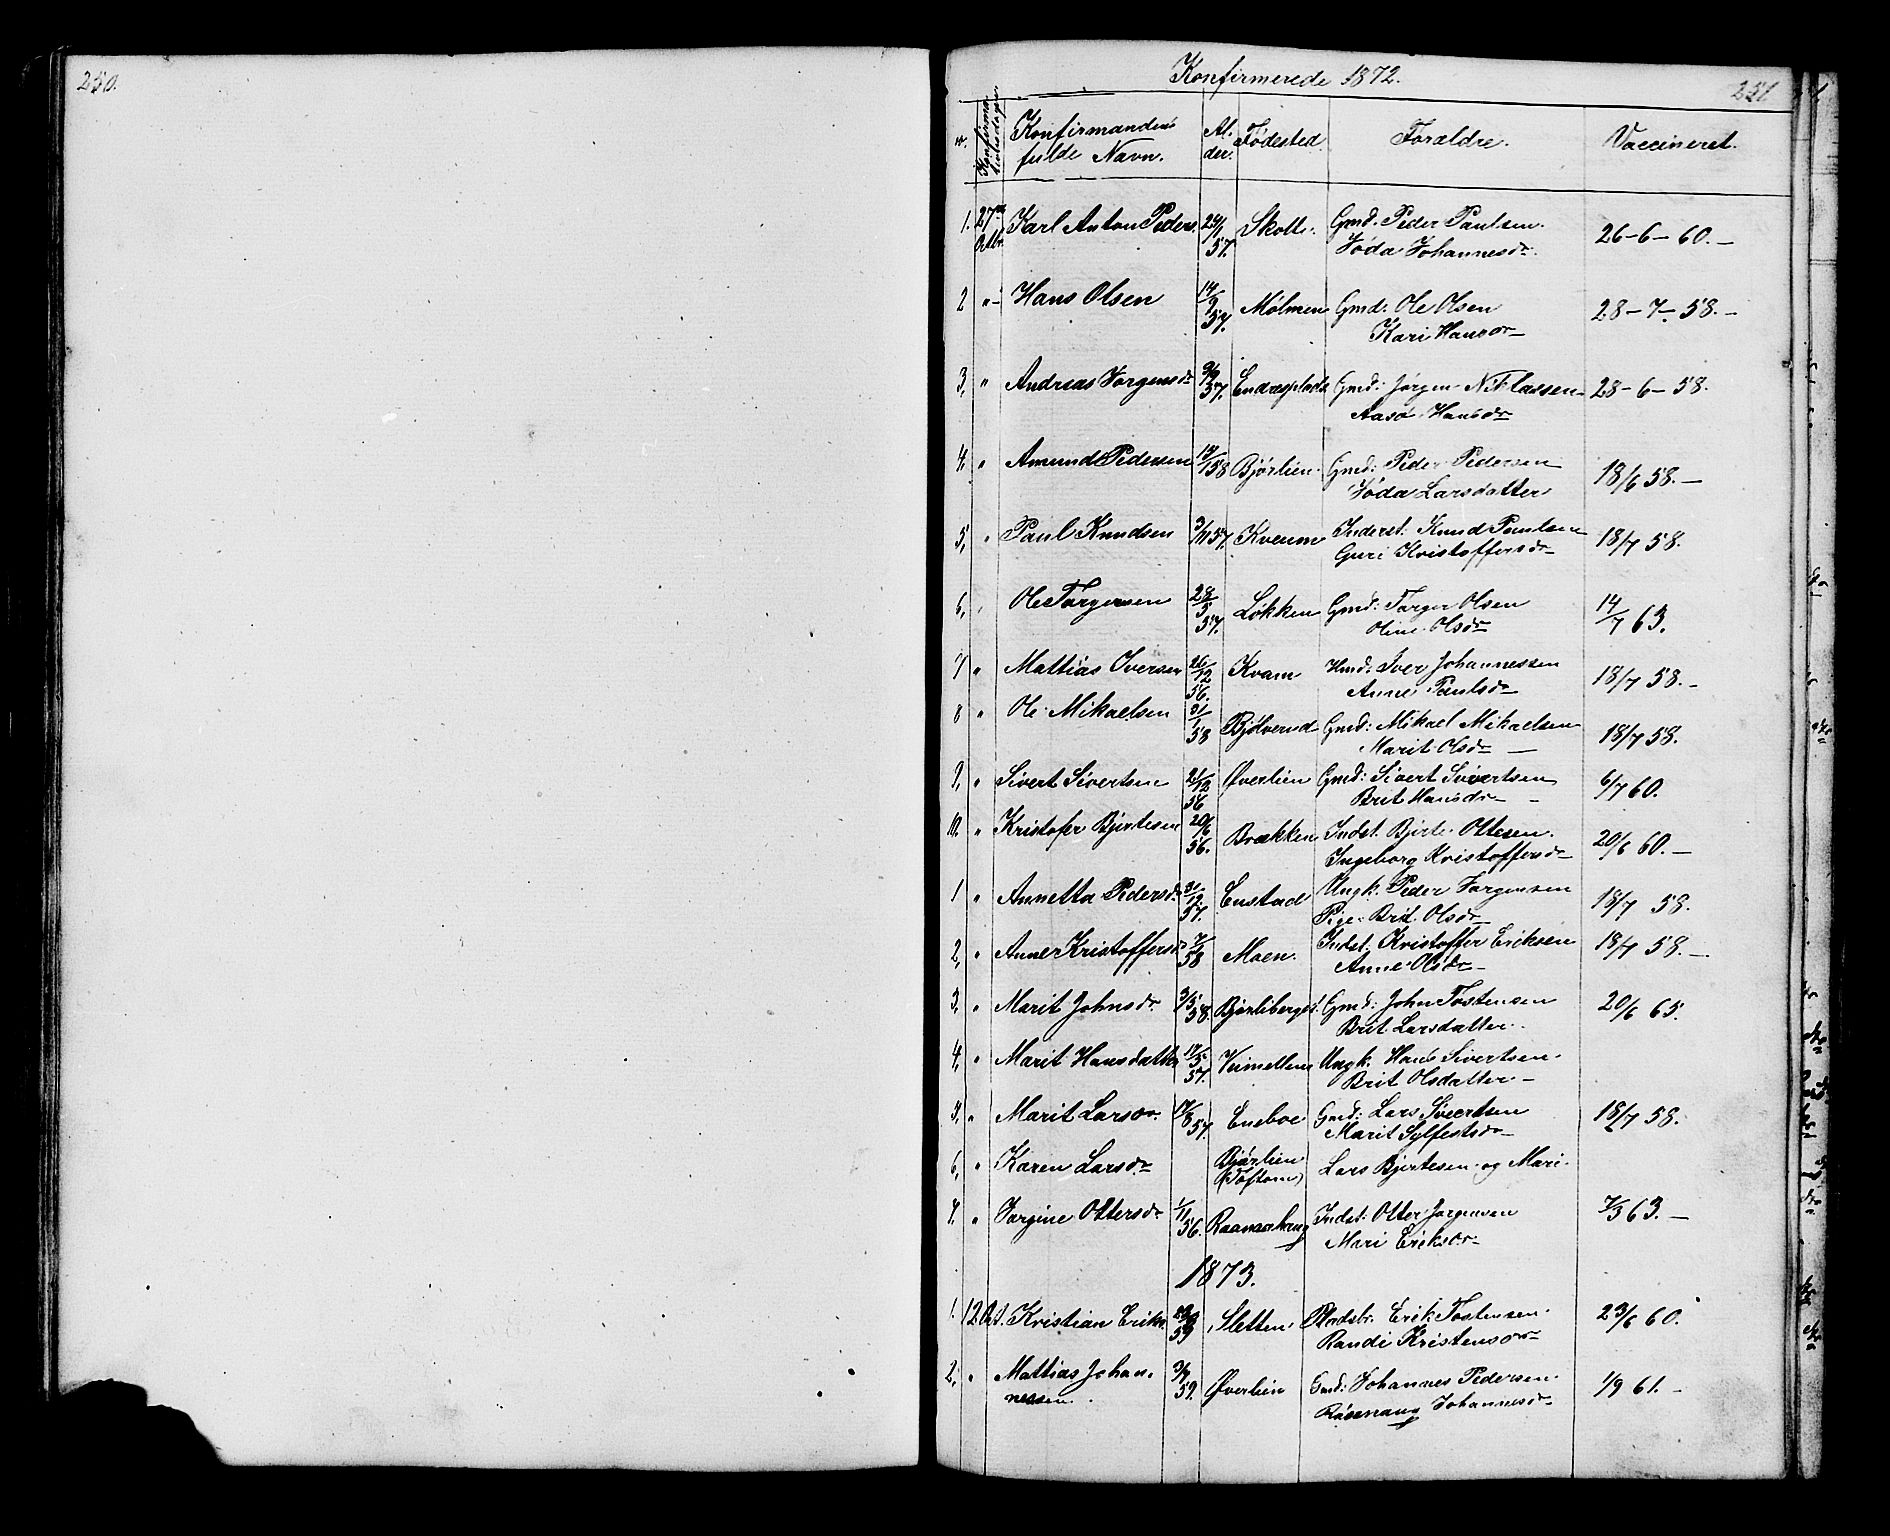 250.
Konfirmerede 1872.
251
Nr. Konfirma-tionsdagen Konfirmandens fulde Navn. Al-der. Fødested. Forældre. Vaccineret.
1. 27de Octbr. Karl Anton Peders. 24/1 57. Skotte. Gmd. Peder Paulsen. 26-6-60.-
Jøda Johannesdr.
2 " Hans Olsen 14/9 57. Mølmen Gmd: Ole Olsen 28-7-58.-
Kari Hansdr
3, " Andreas Jørgens 3/9 57. Endresplads Gmd: Jørgen Niklassen 28-6-58.
Aasø Hansdr
4, " Amund Pedersen 14/1 58 Bjørlien Gmd: Peder Pedersen 18/6 58.-
Jøda Larsdatter
5, " Paul Knudsen 3/11 57. Kveum Inderst: Knud Paulsen 18/7 58.
Guri Kristoffersdr
6, " Ole Torgersen 28/5 57. Løkken Gmd: Torger Olsen 14/7 63.
Oline Olsdr
7 " Mattias Iversen 26/12 56. Kvam Hmd: Iver Johannessen 18/7 58.-
Anne Paulsdr
8 " Ole Mikaelsen 31/1 58 Bjølverud Gmd: Mikael Mikaelsen 18/7 58.
Marit Olsdr -
9, " Sivert Sivertsen 21/12 56 Øverlien Gmd: Sivert Sivertsen 6/7 60.
Brit Hansdr -
10. " Kristofer Bjertesen 20/6 56. Brækken Indst. Bjerte Ottesen. 20/6 60.-
Ingeborg Kristoffersdr
1 " Annetta Pedersdr 31/12 57. Enstad Ungk. Peder Jørgensen 18/7 58.
Pige Brit Olsdr
2, " Anne Kristoffersd 7/2 58 Moen. Indst: Kristoffer Eriksen 18/7 58.-
Anne Olsdr -
3, " Marit Johnsdr. 3/5 58. Bjørliberget. Gmd: John Tostensen 20/6 65.
Brit Larsdatter.
4, " Marit Hansdatter 17/5 57. Ungk. Hans Sivertsen.
Brit Olsdatter -
5, " Marit Larsdr. 17/8 57. Eneboe Gmd: Lars Sivertsen 18/7 58.
Marit Sylfestsdr -
6, " Karen Larsdr Bjørlien (Toftom) Lars Bjertesen og Mari.
7. " Jørgine Ottersdr. 1/11 56. Raanaahaug Indst: Otter Jørgensen 7/5 63.-
Mari Eriksdr.
1873.
1. 12 Oct. Kristian Eriks. 59 Sletten Pladsbr. Erik Tostensen. 23/6 60.
Randi Kristensdr
2, " Mattias Johan-nessen. 3/9 59. Øverlien Gmd: Johannes Pedersen. 1/9 61.-
Røsenaug Johannesdr